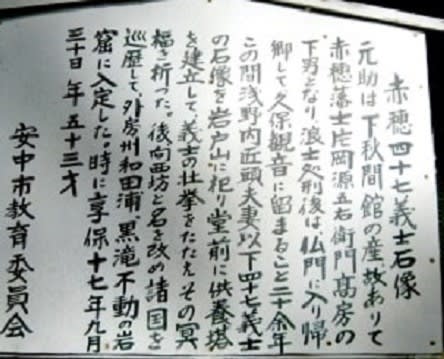 赤穂四十七義士石像
元助は下秋間舘の産故ありて
赤穂藩士片岡源五右衛門髙房の
下男となり、浪士処刑後は、仏門に入り帰
郷して久保観音に留まること二十余年
この間浅野内匠頭夫妻以下四十七義士
の石像を岩戸山に祀り堂前に供養塔
を建立して義士の壮挙をたたえその冥
福を祈った。後向西坊と名を改め諸国を
巡歴して、外房州和田浦、黒滝不動の岩
窟に入定した。時に享保十七年九月
三十日 年五十三才
安中市教育委員会